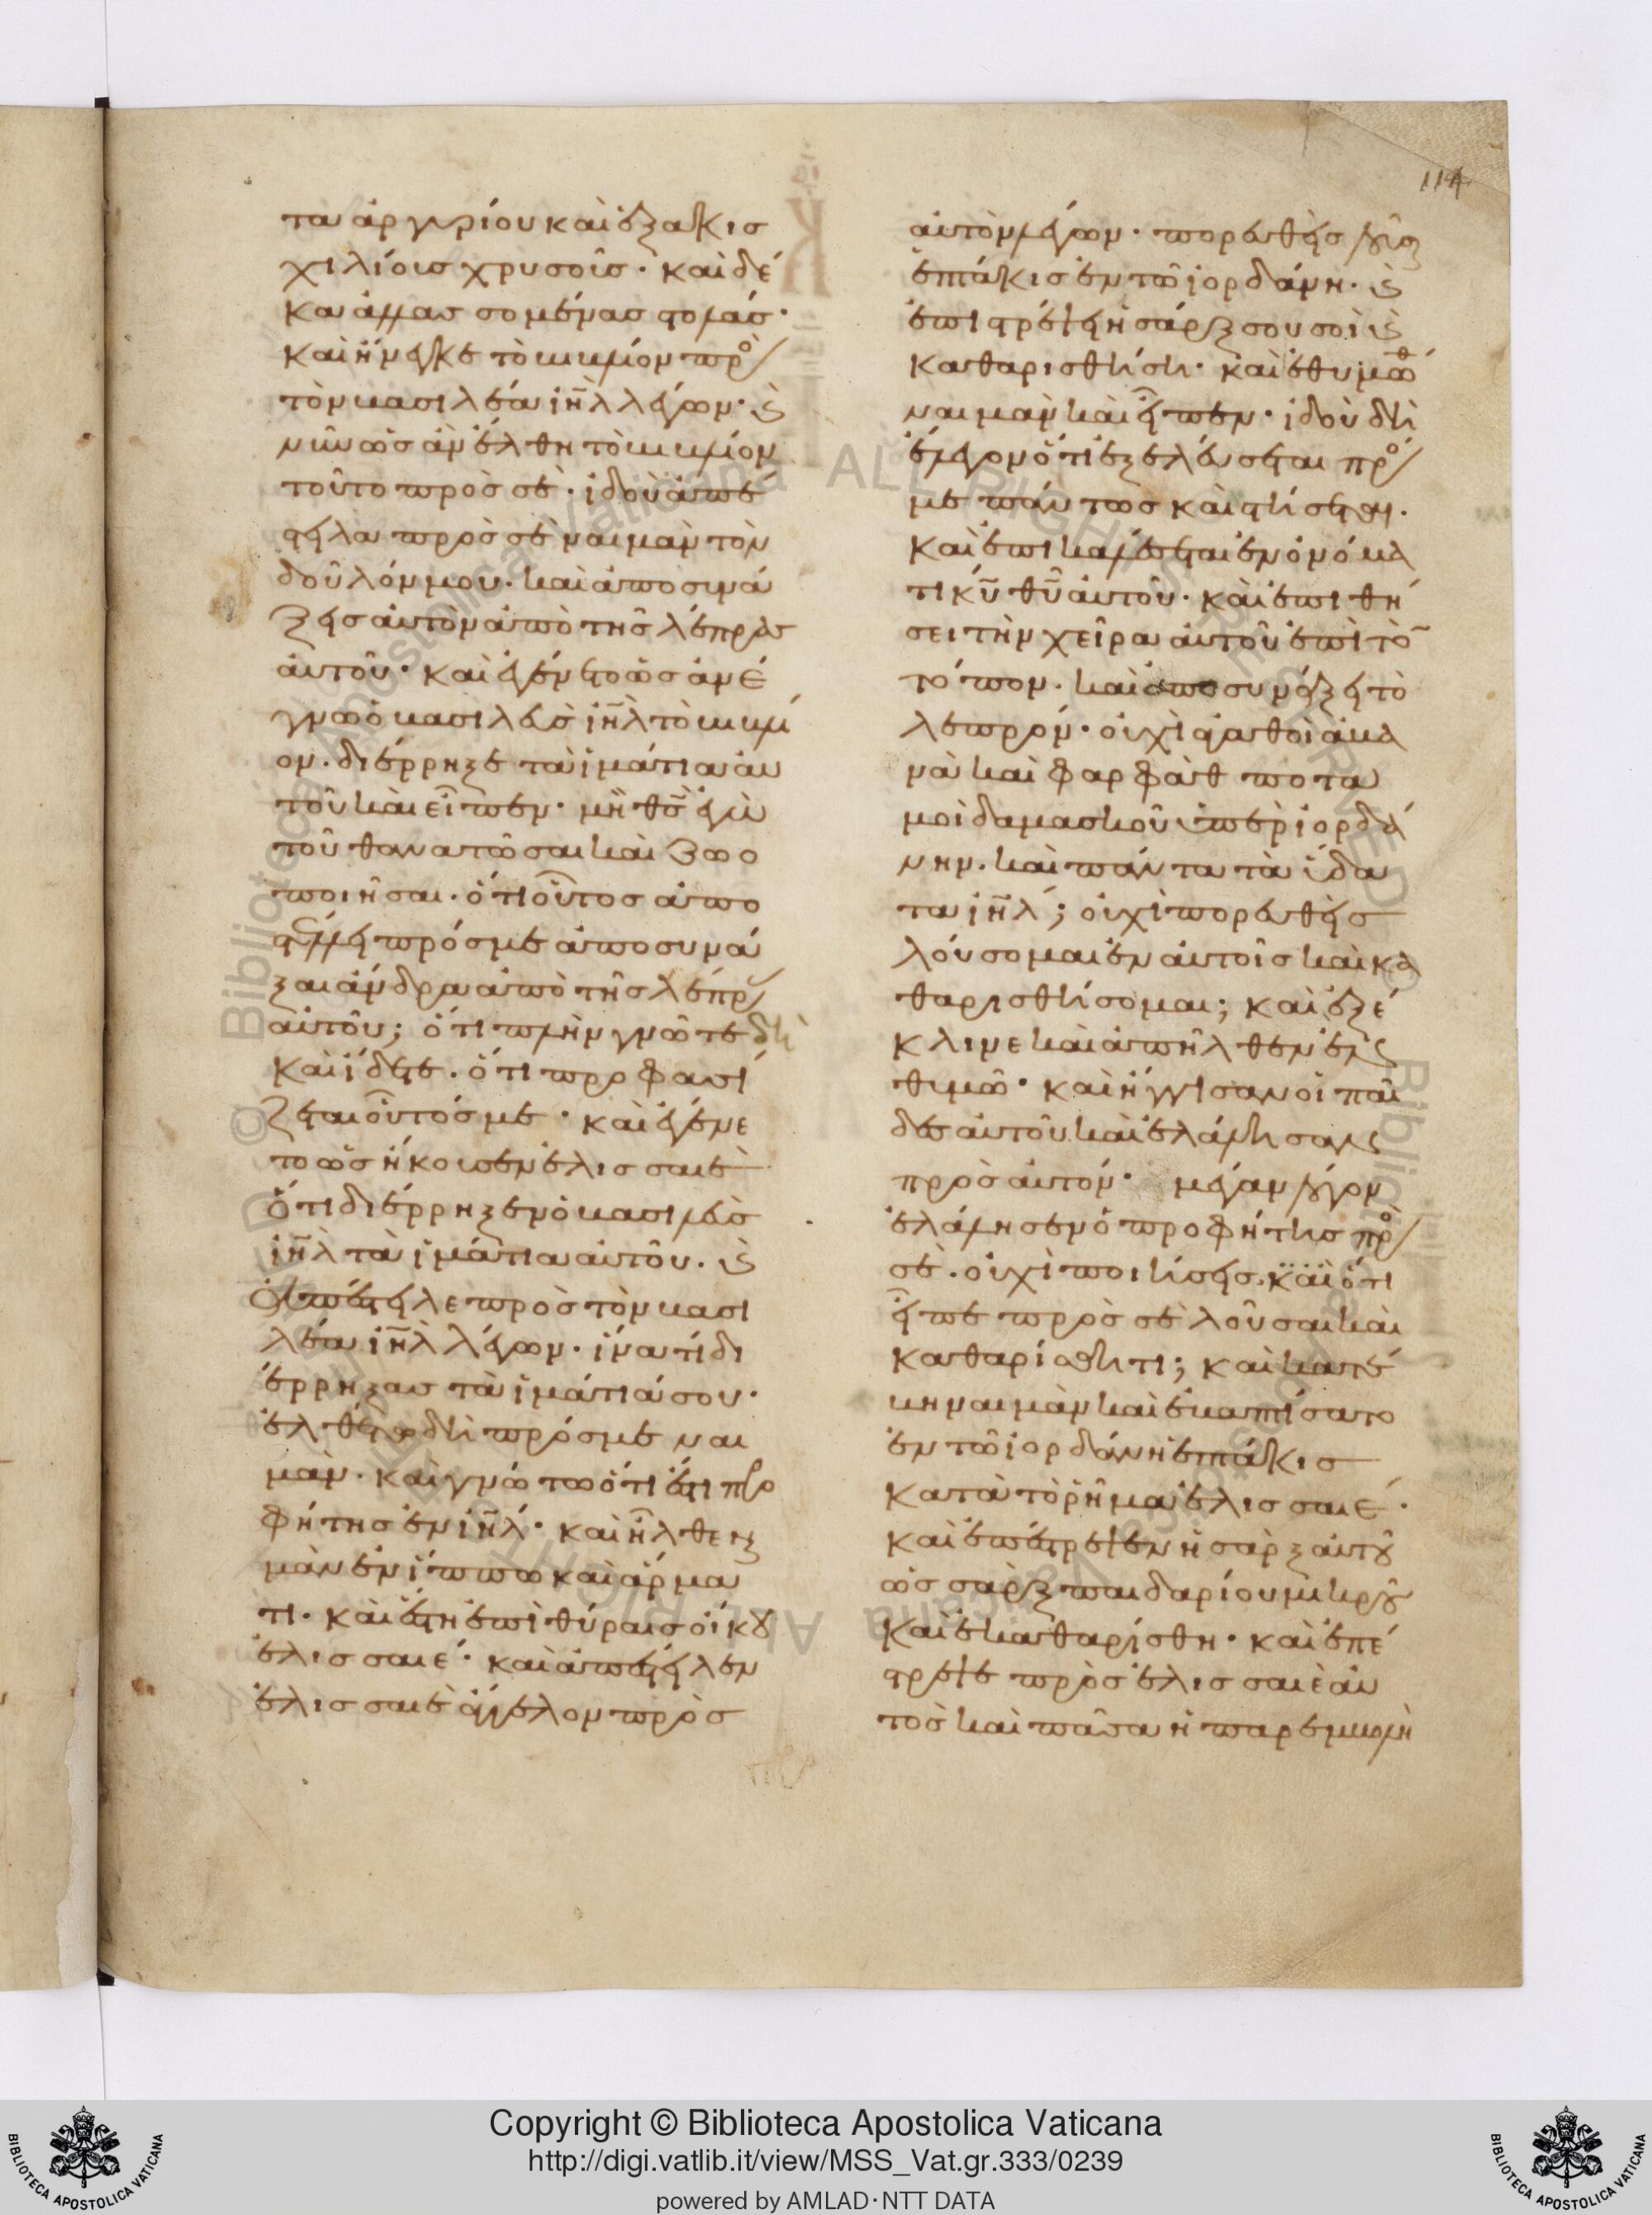 114
τα ἀργυρίου καὶ ἑξακισ
χιλίοισ χρυσοῖσ· καὶ δέ
κα ἀλλασσομένας στολάς·
καὶ ἤνεγκε τὸ βιβλίον πρὸ
τὸν βασιλέα ιη̅λ λέγων· καὶ
νῦν ὡς ἂν ἔλθη τὸ βιβλίον
τοῦτο πρὸς σὲ· ἰδοὺ ἀπέ
στειλα πρὸς σὲ ναιμὰν τὸν
δοῦλόν μου· καὶ ἀποσυνά
ξεις αὐτὸν ἀπὸ τῆς λέπρας
αὐτοῦ· καὶ ἐγένετο ὡς ἀνέ
γνω ὁ βασιλεὺς ιη̅λ τὸ βιβλί
ον· διέρρηξε τὰ ἱμάτια αὐ
τοῦ καὶ εἶπεν· μὴ θς̅ ἐγὼ
τοῦ θανατῶσαι καὶ ζωο
ποιῆσαι· ὅτι οὗτος ἀπο
στέλλει πρός με ἀποσυνά
ξαι ἄνδρα ἀπὸ τῆς λέπρ
αὐτοῦ; ὅτι πλὴν γνῶτε δὴ
καὶ ἴδετε· ὅτι προφασί
ζεται οὗτός με· καὶ ἐγένε
το ὡς ἤκουσεν ἐλισσαιὲ
ὅτι διέρρηξεν ὁ βασιλεὺς
ιη̅λ τὰ ἱμάτια αὐτοῦ· καὶ
ἀπέστειλε πρὸς τὸν βασι
λέα ιη̅λ λέγων· ἵνα τί δι
έρρηξας τὰ ἱμάτιά σου·
ἐλθέτω δὴ πρός με ναι
μὰν· καὶ γνώτω ὅτι ἔστι προ
φήτης ἐν ιη̅λ· καὶ ἦλθε ναι
μὰν ἐν ἵππω καὶ ἅρμα
τι· καὶ ἔστη ἐπὶ θύραις οἴκου
ἐλισσαιέ· καὶ ἀπέστειλεν
ἐλισσαιὲ ἄγγελον πρὸς
αὐτὸν λέγων· πορευθεὶς λοῦσαι
ἑπτάκις ἐν τῶ ἰορδάνη· καὶ
ἐπιστρέψει ἡ σάρξ σου σοὶ καὶ
καθαρισθήση· καὶ ἐθυμώθη
ναιμὰν καὶ εἶπεν· ἰδοὺ δὴ
ἔλεγον ὅτι ἐξελεύσεται πρό
με πάντως καὶ στήσεται·
καὶ ἐπικαλέσεται ἐν ὀνόμα
τι κυ̅ θυ̅ αὐτοῦ· καὶ ἐπιθή
σει τὴν χεῖρα αὐτοῦ ἐπὶ τὸ
τόπον· καὶ ἀποσυνάξει τὸ
λεπρόν· οὐχὶ ἀγαθοὶ ἀβα
νὰ καὶ φαρφὰθ ποτα
μοὶ δαμασκοῦ ὑπὲρ ἰορδά
νην· καὶ πάντα τὰ ὕδα
τα ιη̅λ; οὐχὶ πορευθεὶς
λούσομαι ἐν αὐτοῖς καὶ κα
θαρισθήσομαι; καὶ ἐξέ
κλινε καὶ ἀπῆλθεν ἐν
θυμῶ· καὶ ἤγγισαν οἱ παῖ
δες αὐτοῦ καὶ ἐλάλησαν
πρὸς αὐτόν· μέγαν λόγον
ἐλάλησεν ὁ προφήτης πρὸ
σὲ· οὐχὶ ποιήσεις· καὶ ὅτι
εἶπε πρὸς σὲ λοῦσαι καὶ
καθαρίσθητι; καὶ κατέ
βη ναιμὰν καὶ ἐβαπτίσατο
ἐν τῶ ἰορδάνη ἑπτάκις
κατὰ τὸ ῥῆμα ἐλισσαιέ·
καὶ ἐπέστρεψεν ἡ σὰρξ αὐτοῦ
ὡς σὰρξ παιδαρίου μικροῦ
καὶ ἐκαθαρίσθη· καὶ ἐπέ
στρεψε πρὸς ἐλισσαιὲ αὐ
τὸς καὶ πᾶσα ἡ παρεμβολὴ
Copyright © Biblioteca Apostolica Vaticana
http://digi.vatlib.it/view/MSS_Vat.gr.333/0239
powered by AMLAD·NTT DATA
BIBLIOTECA APOSTOLICA VATICANA
BIBLIOTECA APOSTOLICA VATICANA